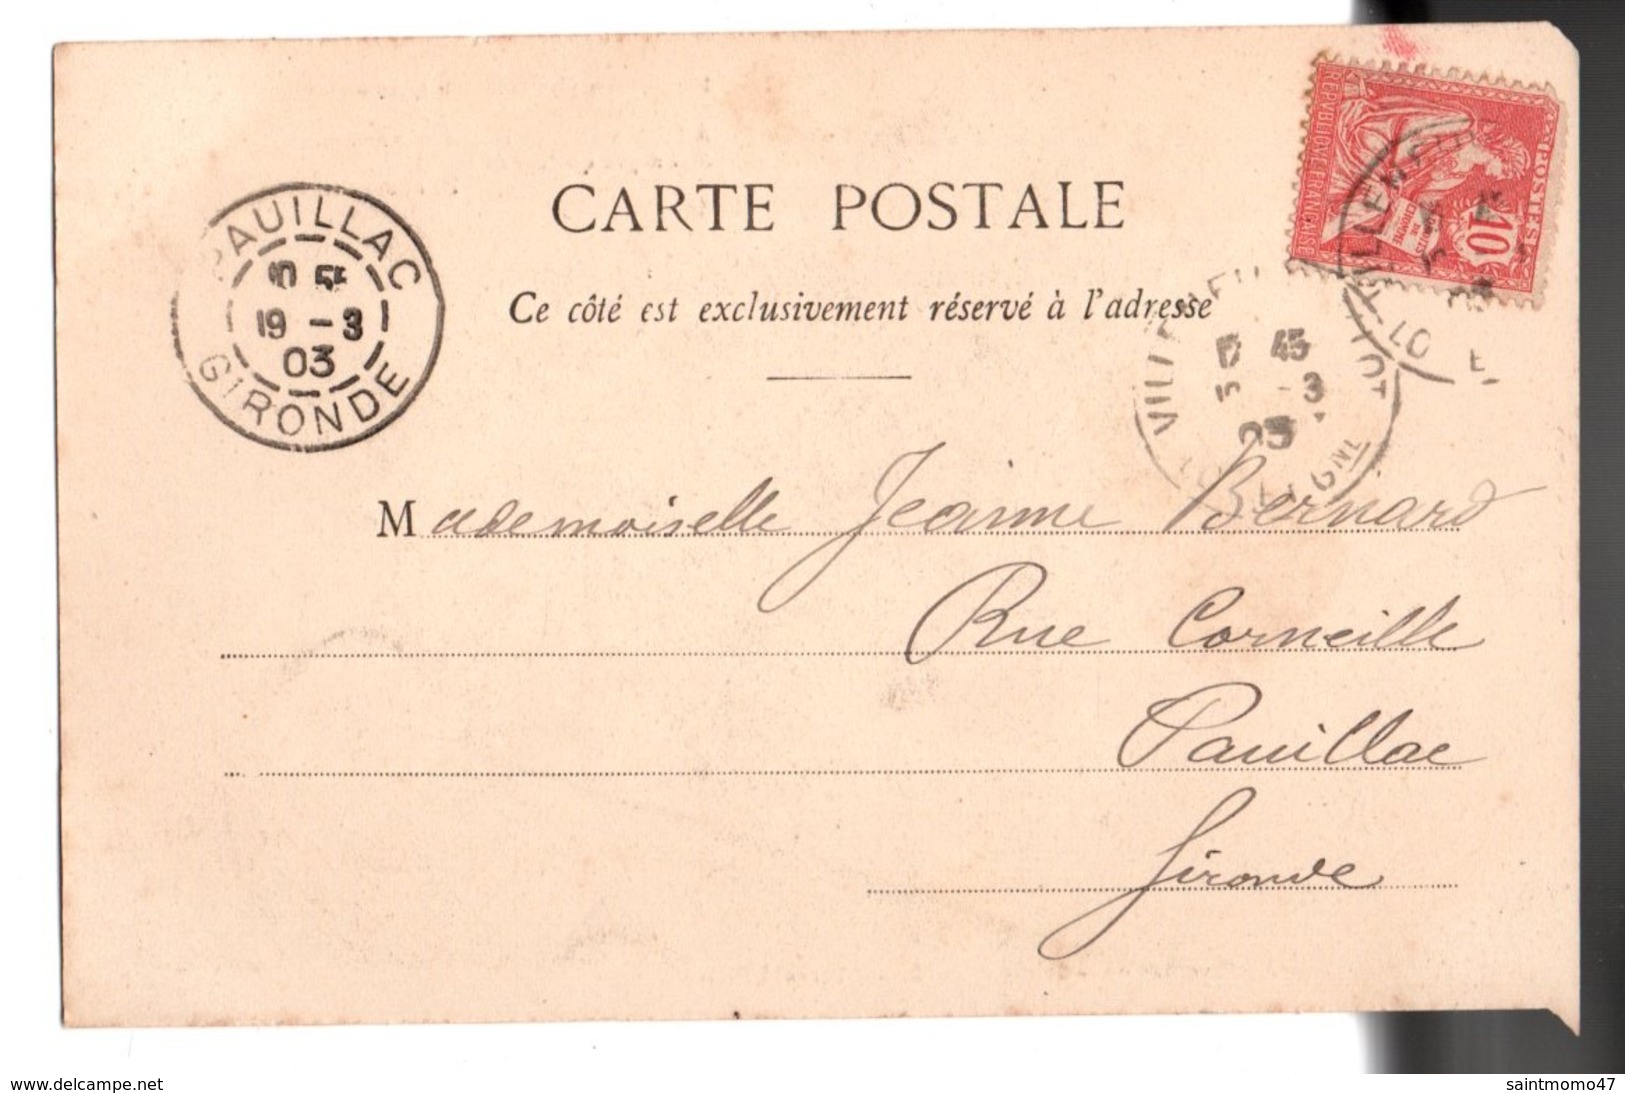 RÉPUBLIQUE FRANÇAISE
POSTES
10
PAUILLAC
19 - 3
03
GIRONDE
CARTE POSTALE
Ce côté est exclusivement réservé à l'adresse
45
- 3
03
Mademoiselle Jeanne Bernard
Rue Corneille
Pauillac
Gironde
www.delcampe.net
saintmomo47